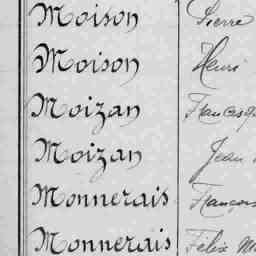 Moison Pierre
Moison Henri
Moizan
Moizan Jean
Monnerais François
Monnerais Félix